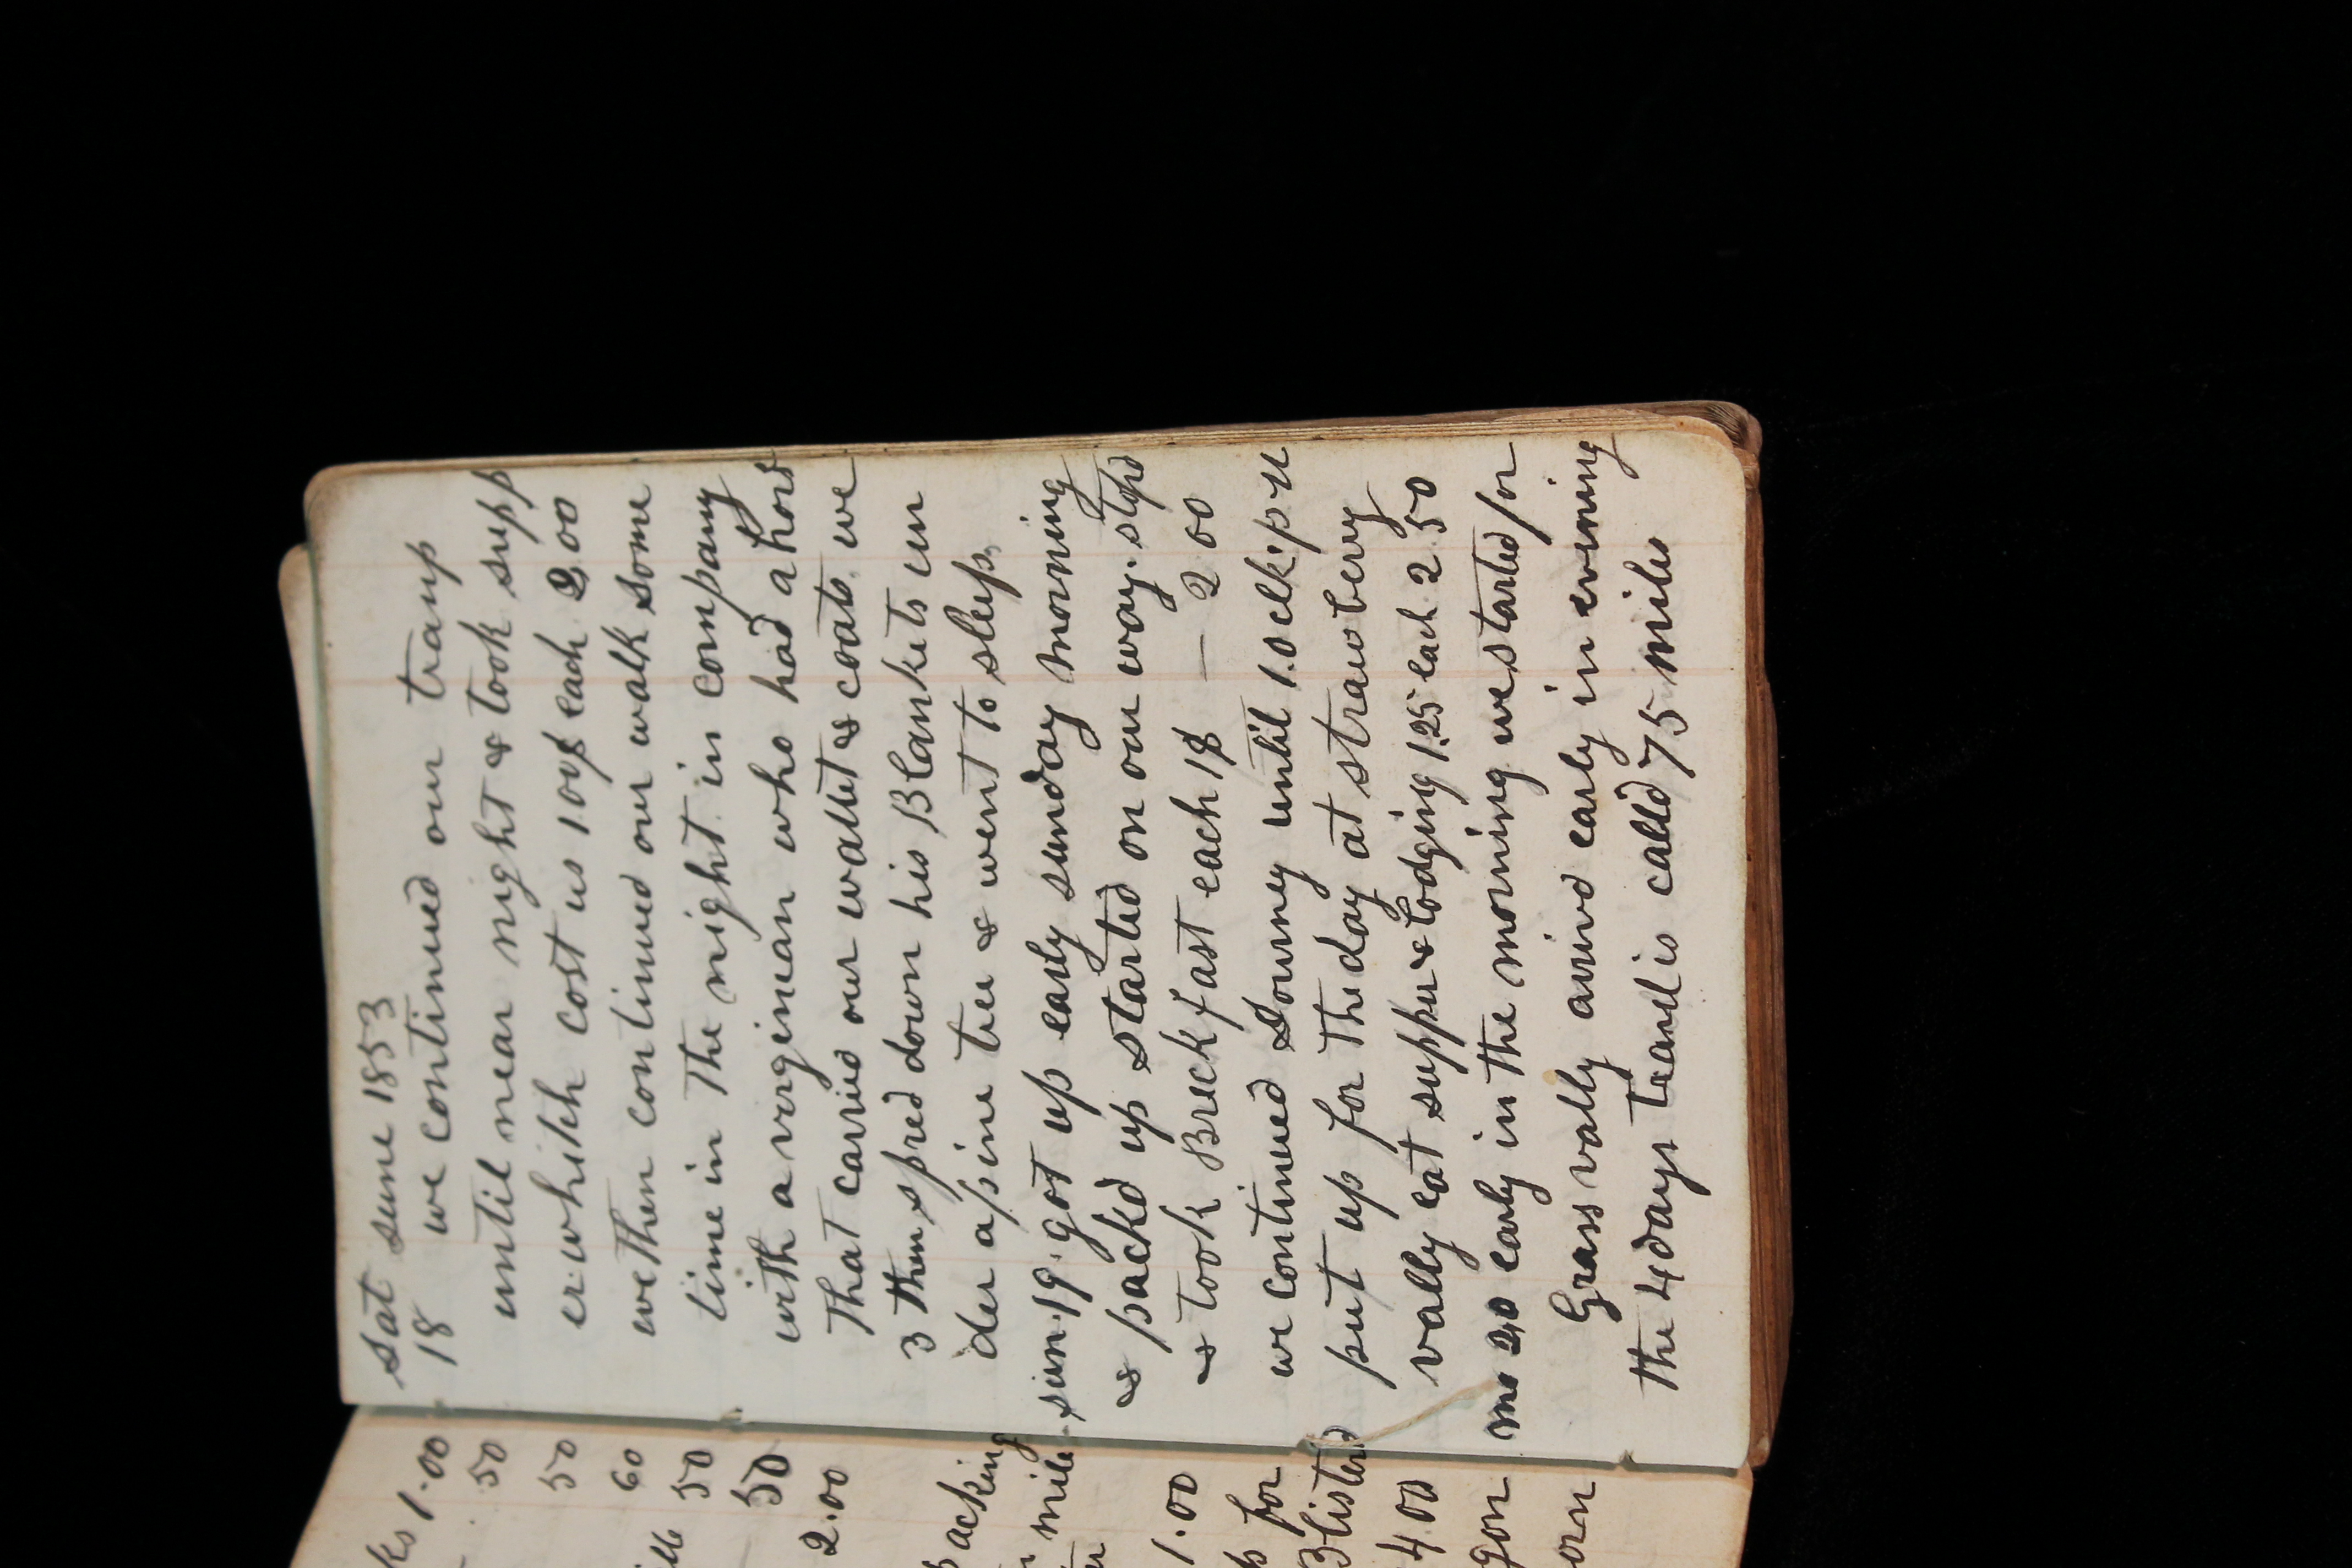 ks 1.00
50
50
60
ille 50
50
2.00
packing
mile
1.00
for
Blister'd
4.00
gon
orn
Sat June 1853
18 we continued our tramp
until near night & took supp
er whitch cost us 100$ each 2,00
we then continued our walk some
time in the night in company
with a virginian who had a hors
that carried our wallet & coats. we
3 then spred down his Blankets un
der a pine tree & went to sleep,
sun. 19. got up early sunday morning
& pack'd up started on our way. stop'd
& took Breckfast each 1$ — 2 00
we continued Journey until 1.0 clk. p.M
put up for the day at strawberry
vally eat supper & lodging 1,25 each 2.50
mo 20 early in the morning we started for
Grass vally arriv'd early in evening
the 4 days travel is call'd 75 miles